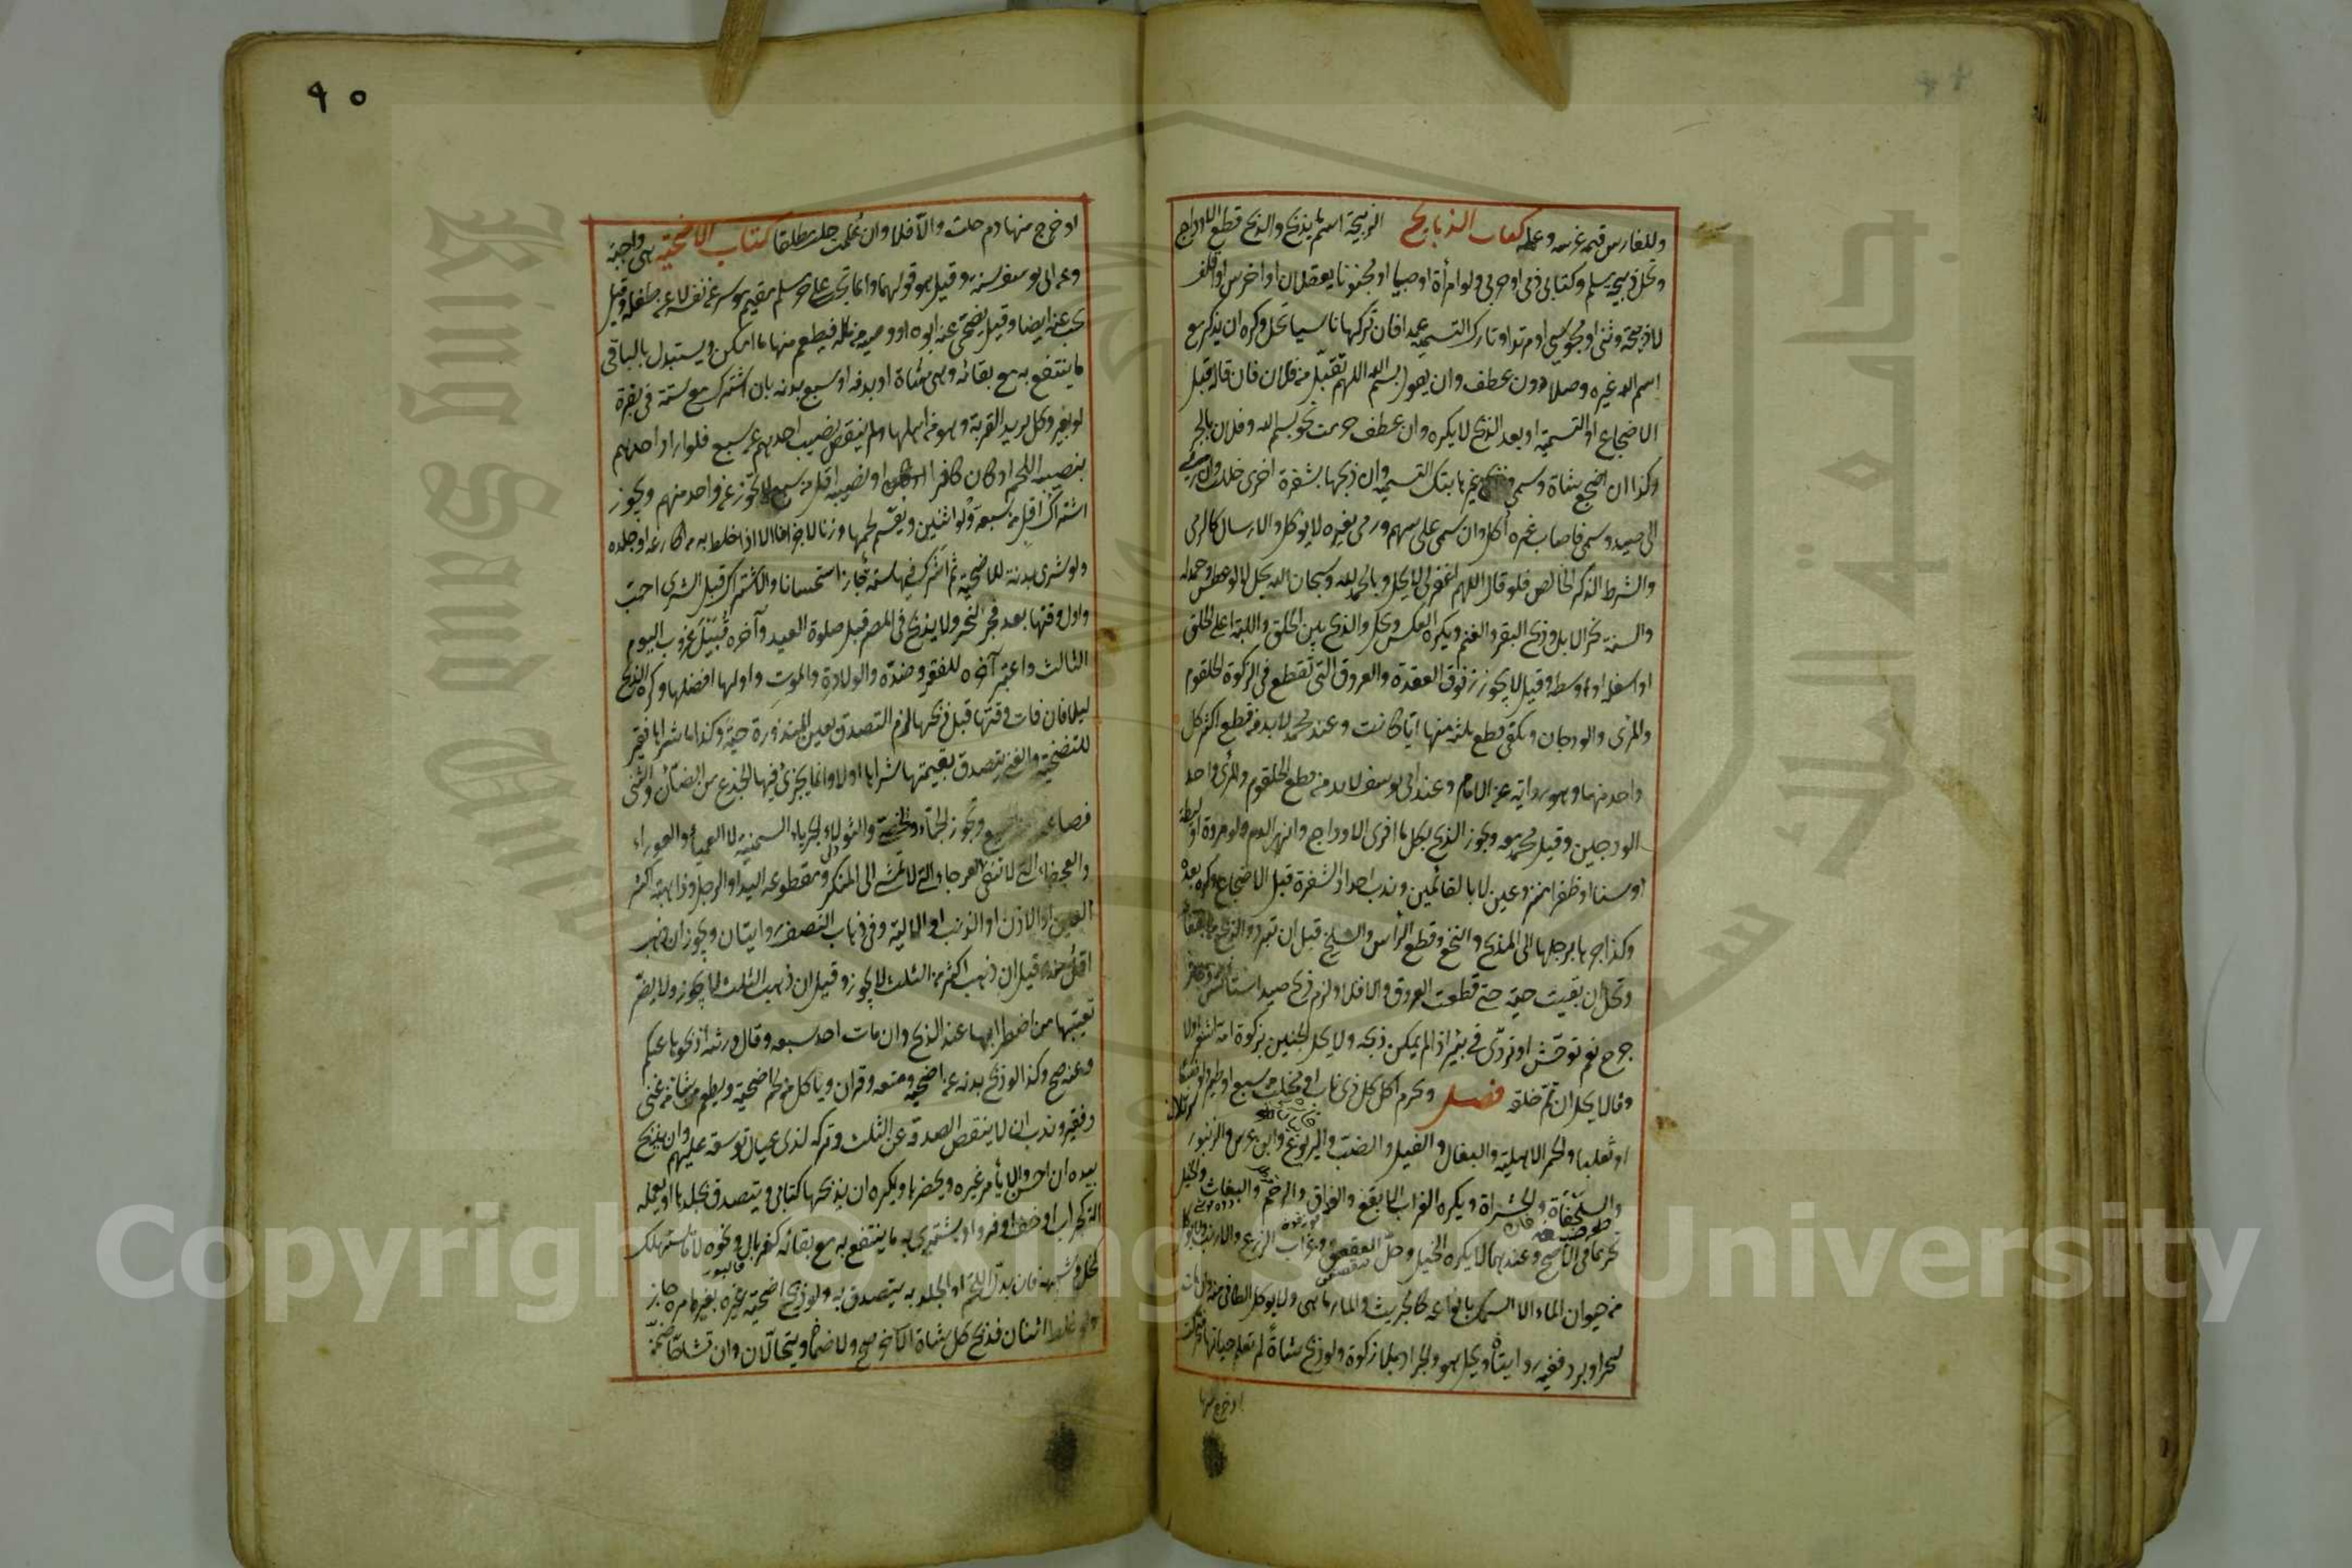 وللغارس قيمة غرسه وعمله كتاب الذبايح الذبيحة اسم ما يذبح والذبح قطع الاوداج
وتحل ذبيحة مسلم وكتابي ذمي او حربي ولو امرأة او صبيا او مجنونا يعقلان او اخرس او اقلف
لا ذبيحة وثنى او مجوسي او مرتد او تارك التسمية عمدا فان تركها ناسيا تحل وكره ان يذكر مع
اسم الله غيره وصلا دون عطف وان يقول بسم الله اللهم تقبل من فلان فان قاله قبل
الاضجاع او التسمية او بعد الذبح لا يكره وان عطف حرمت نحو بسم الله وفلان بالجر
وكذا ان اضجع شاة وسمى وذبح غيرها بتلك التسمية وان ذبحها بشفرة اخرى حلت وان رمى
الى صيد وسمى فاصاب غيره أكل وان سمى على سهم ورمى بغيره لا يوكل والارسال كالرمى
والشرط الذكر الخالص فلو قال اللهم اغفر لى لا يحل وبالحمد لله وسبحان الله يحل لا لو عطس وحمد له
والسنة نحر الابل وذبح البقر والغنم ويكره العكس وتحل والذبح بين الحلق واللبة اعلى الحلق
او اسفله او اوسطه وقيل لا يجوز فوق العقدة والعروق التى تقطع في الزكوة الحلقوم
والمرى والودجان ويكفى قطع ثلثة منها ايا كانت وعند محمد لا بد من قطع اكثر كل
واحد منها وهو رواية عن الامام وعند ابى يوسف لا بد من قطع الحلقوم والمرى واحد
الودجين وقيل محمد معه ويجوز الذبح بكل ما افرى الاوداج وانهر الدم ولو مروة او ليطة
او سنا او ظفرا منزوعين لا بالقائمين وندب احداد الشفرة قبل الاضجاع وكره بعده
وكذا جرها برجلها الى المذبح والنخع وقطع الرأس والسلخ قبل ان تبرد والذبح من القفا
وتحل ان بقيت حية حتى قطعت العروق والا فلا ولزم ذبح صيد استأنس
جرح نعم توحش او تردى في بئر اذا لم يمكن ذبحه ولا يحل الجنين بزكوة امه اشعر اولا
وقالا يحل ان تم خلقه فصل ويحرم اكل كل ذى ناب او مخلب من سبع او طير ولو ضبعا
او ثعلبا والحمر الاهلية والبغال والفيل والضب واليربوع وابن عرس والزنبور
والسلحفاة والحشرات ويكره الغراب الابقع والغداف والرخم والبغاث والخيل
تحريما في الاصح وعندهما لا يكره الخيل وحل العقعق وغراب الزرع والارنب ولا يوكل
من حيوان الماء الا السمك بانواعه كالجريث والمارماهى ولا يوكل الطافى منه وان مات
لحر او برد ففيه روايتان ويحل هو والجراد بلا زكوة ولو ذبح شاة لم تعلم حياتها فتحركت
او خرج منها
٩٠
او خرج منها دم حلت والا فلا وان علمت حلت مطلقا كتاب الاضحية هى واجبة
وعن ابى يوسف سنة وقيل هو قولهما وانما تجب على حر مسلم مقيم موسر عن نفسه لا عن طفله وقيل
تجب عنه ايضا وقيل يضحى عنه ابوه او وصيه من ماله فيطعم منها ما امكن ويستبدل بالباقى
ما ينتفع به مع بقائه وهى شاة او بدنة او سبع بدنة بان اشترك مع ستة في بقرة
او بعير وكل يريد القربة وهو من اهلها ولم ينقص نصيب احدهم عن سبع فلو اراد احدهم
بنصيبه اللحم او كان كافرا او نصيبه اقل من سبع لا يجوز عن واحد منهم ويجوز
اشتراك اقل من سبعة ولو اثنين ويقسم لحمها وزنا لا جزافا الا اذا خلط به من اكارعه او جلده
ولو شرى بدنة للاضحية ثم اشرك فيها ستة جاز استحسانا والاشتراك قبل الشرى احب
واول وقتها بعد فجر النحر ولا يذبح في المصر قبل صلوة العيد وآخره قبيل غروب اليوم
الثالث واعتبر آخره للفقر وضده والولادة والموت واولها افضلها وكره الذبح
ليلا فان فات وقتها قبل ذبحها لزم التصدق بعين المنذورة حية وكذا ما شراها فقير
للتضحية والغنى يتصدق بقيمتها شراها اولا وانما يجزئ فيها الجذع من الضأن والثنى
فصاعدا ويجوز الجماء والخصى والثولاء والجرباء السمينة لا العمياء والعوراء
والعجفاء التى لا تنقى والعرجاء التى لا تمشى الى المنسك ومقطوعة اليد او الرجل وذاهبة اكثر
العين او الاذن او الذنب او الالية وفى ذهاب النصف روايتان ويجوز ان ذهب
اقل منه وقيل ان ذهب اكثر من الثلث لا يجوز وقيل ان ذهب الثلث لا يجوز ولا يضر
تعيبها من اضطرابها عند الذبح وان مات احد سبعة وقال ورثته اذبحوها عنكم
وعنه صح وكذا لو ذبح بدنة عن اضحية ومتعة وقران ويأكل من لحم اضحية ويطعم من شاء من غنى
وفقير وندب ان لا ينقص الصدقة عن الثلث وتركه لذى عيال توسعة عليهم وان يذبح
بيده ان احسن والا يأمر غيره ويحضرها ويكره ان يذبحها كتابى ويتصدق بجلدها او يعمله
آلة كجراب او خف او فرو او يشترى به ما ينتفع به مع بقائه كغربال ونحوه لا ما يستهلك
كخل وشبهه فان بدل اللحم او الجلد به يتصدق به ولو ذبح اضحية غيره بغير امره جاز
ولو غلط اثنان فذبح كل شاة الآخر صح ولا ضمان ويتحالان وان تشاحا ضمن
Copyright © King Saud University
جامعة الملك سعود
King Saud University